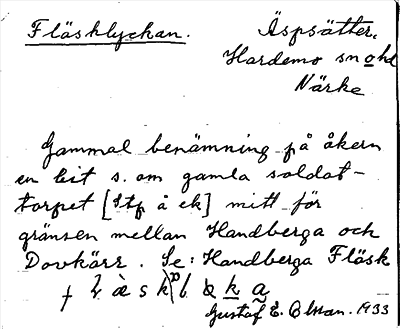 Fläsklyckan.
Äspsätter.
Hardemo sn o hd
Närke
Gammal benämning på åkern
en bit s. om gamla soldat-
torpet [Stf å ek] mitt för
gränsen mellan Handberga och
Dovkärr. Se: Handberga Fläsk
Gustaf E. Olsson. 1933